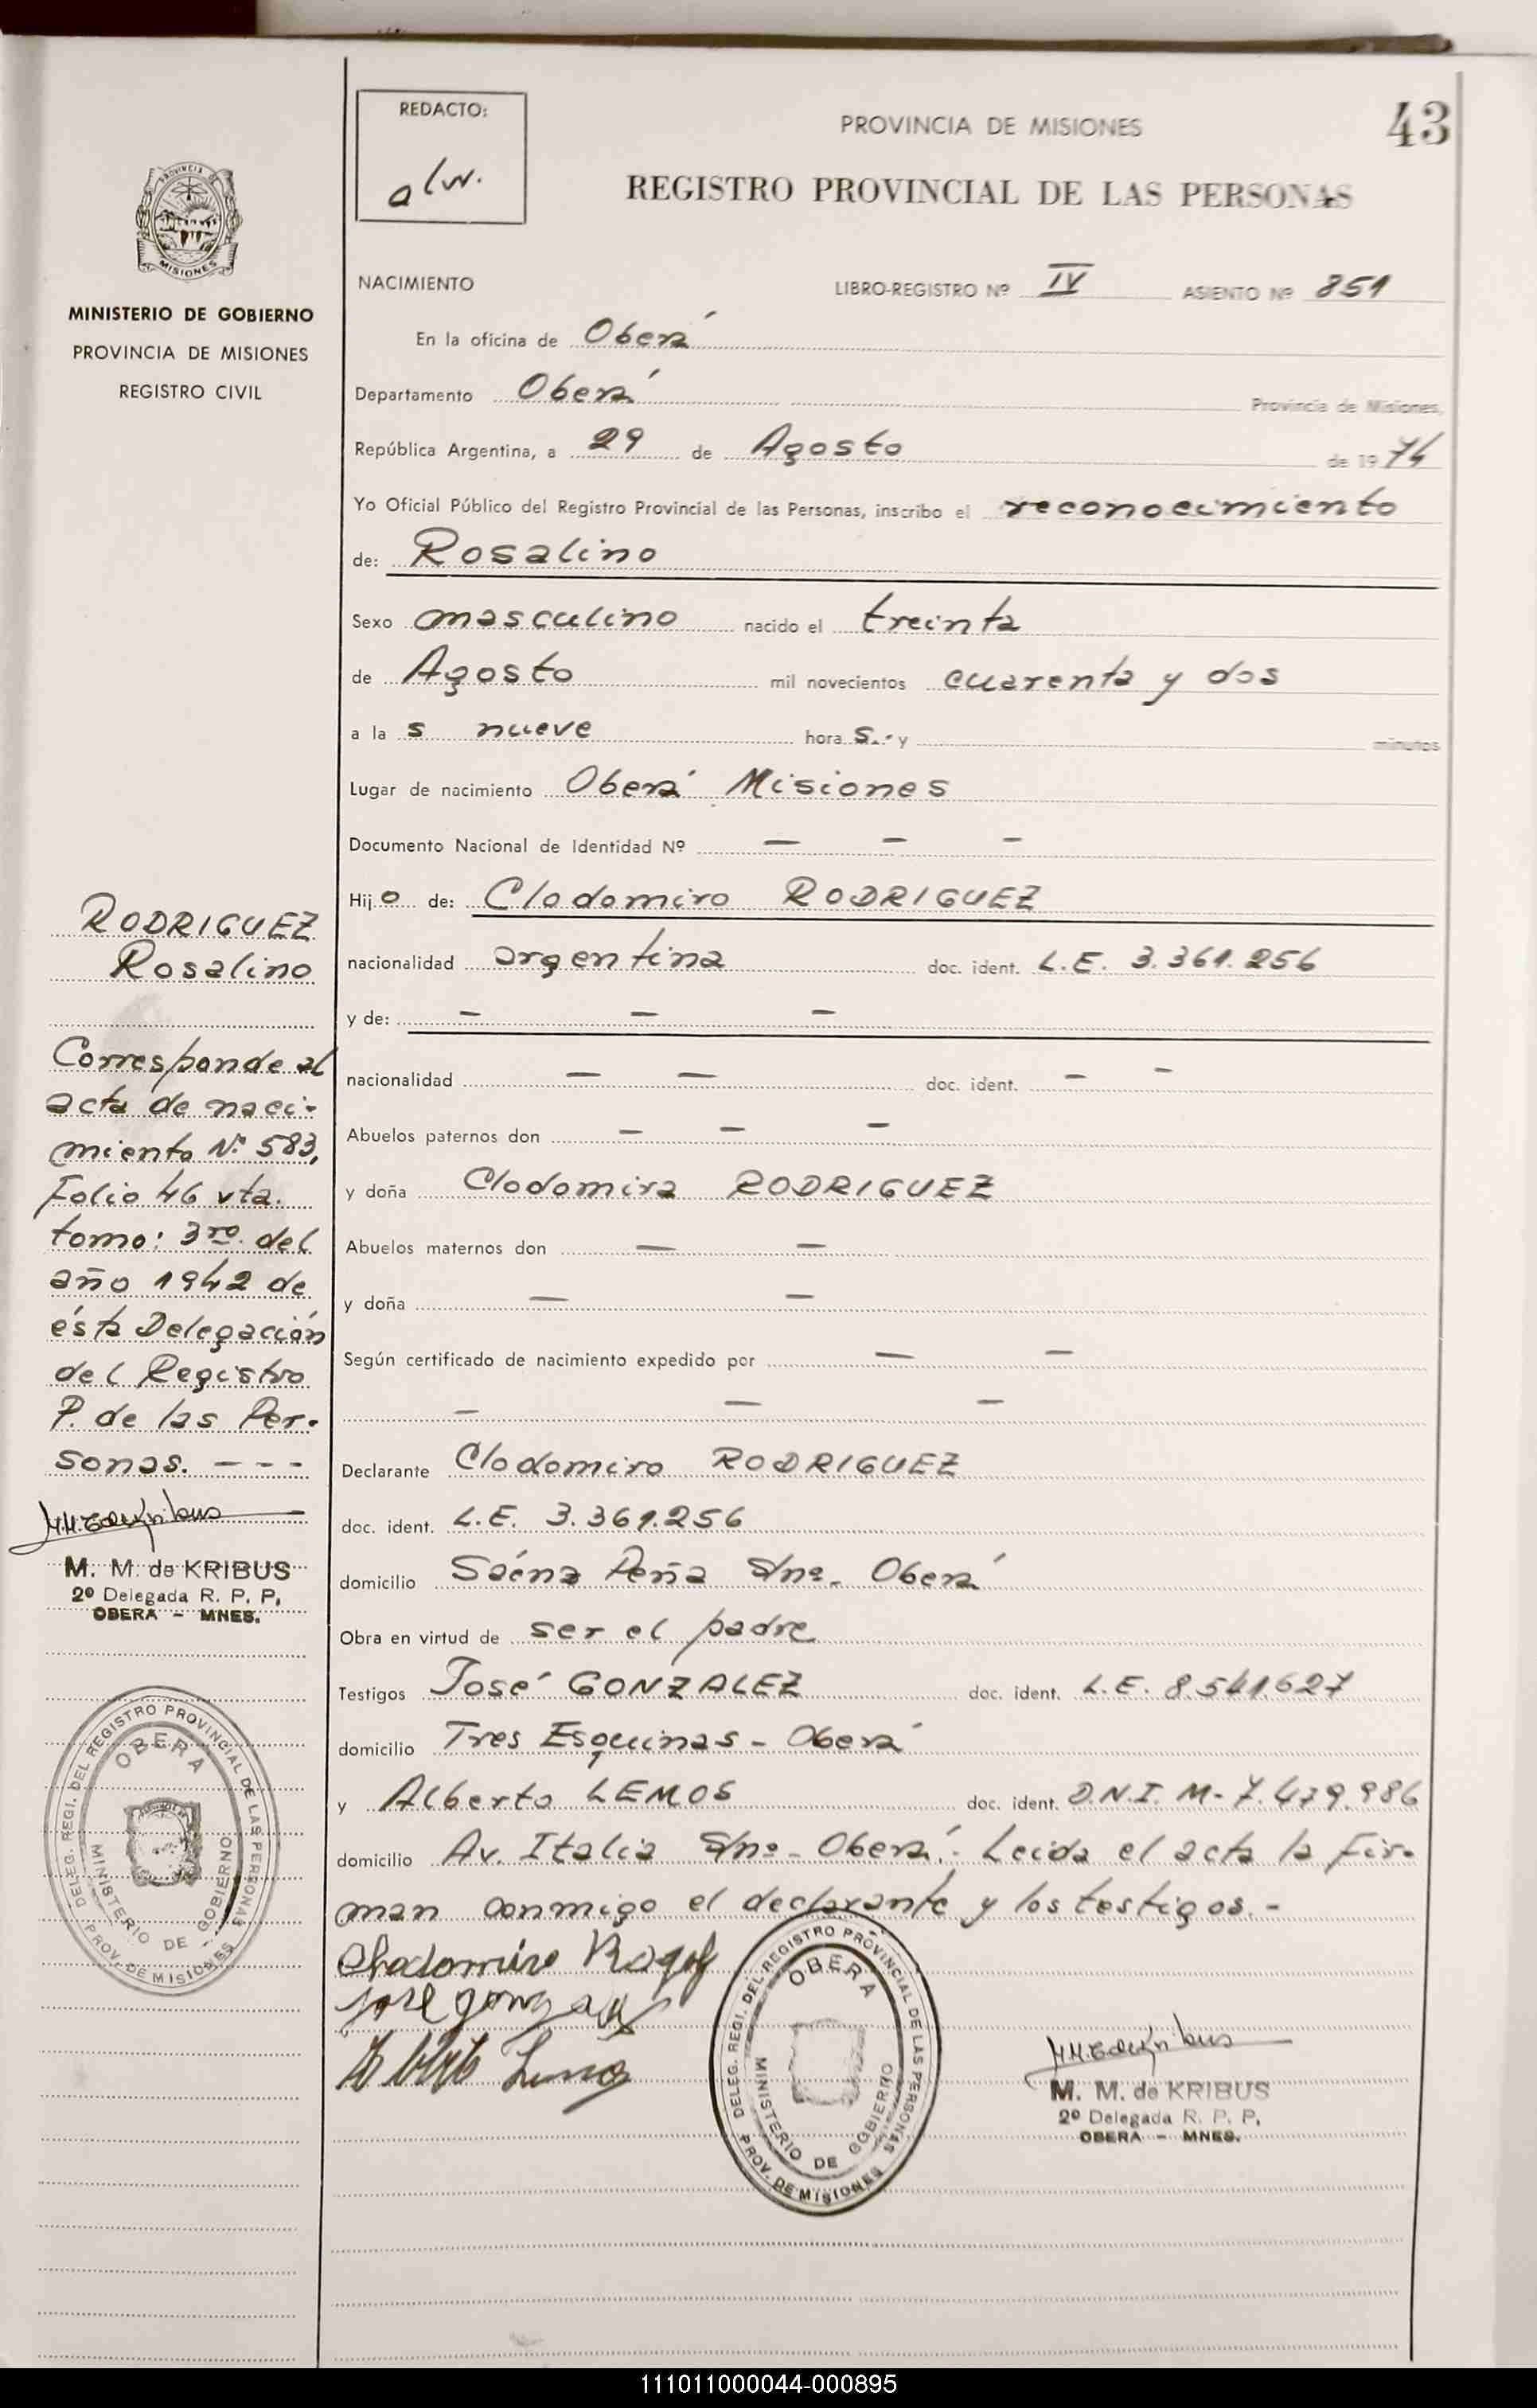 REDACTO:
alw.
PROVINCIA DE MISIONES
43
REGISTRO PROVINCIAL DE LAS PERSONAS
PROVINCIA DE
MISIONES
MINISTERIO DE GOBIERNO
PROVINCIA DE MISIONES
REGISTRO CIVIL
NACIMIENTO LIBRO-REGISTRO Nº IV ASIENTO Nº 851
En la oficina de Oberá
Departamento Oberá Provincia de Misiones,
República Argentina, a 29 de Agosto de 1974
Yo Oficial Público del Registro Provincial de las Personas, inscribo el reconocimiento
de: Rosalino
Sexo masculino nacido el treinta
de Agosto mil novecientos cuarenta y dos
a la s nueve hora s.- y minutos
Lugar de nacimiento Oberá Misiones
Documento Nacional de Identidad Nº — — —
Hijo de: Clodomiro RODRIGUEZ
nacionalidad argentina doc. ident. L.E. 3.361.256
y de: — — —
nacionalidad — — doc. ident. — —
Abuelos paternos don — — —
y doña Clodomira RODRIGUEZ
Abuelos maternos don — —
y doña — —
Según certificado de nacimiento expedido por — —
— — —
Declarante Clodomiro RODRIGUEZ
doc. ident. L.E. 3.361.256
domicilio Saénz Peña S/nº- Oberá
Obra en virtud de ser el padre
Testigos José GONZALEZ doc. ident. L.E. 8.541.627
domicilio Tres Esquinas - Oberá
y Alberto LEMOS doc. ident. D.N.I. M- 7.479.986
domicilio Av. Italia S/nº - Oberá.- Leida el acta la fir-
man conmigo el declarante y los testigos.-
RODRIGUEZ
Rosalino
Corresponde al
acta de naci-
miento Nº 583,
Folio 46 vta.
tomo: 3ro. del
año 1942 de
ésta Delegación
del Registro
P. de las Per-
sonas. - - -
M. M. de KRIBUS
2º Delegada R. P. P.
OBERA - MNES.
DELEG. REGI. DEL REGISTRO PROVINCIAL DE LAS PERSONAS
OBERA
MINISTERIO DE GOBIERNO
PROV. DE MISIONES
Clodomiro
jose gonzalez
DELEG. REGI. DEL REGISTRO PROVINCIAL DE LAS PERSONAS
OBERA
MINISTERIO DE GOBIERNO
PROV. DE MISIONES
M. M. de KRIBUS
2º Delegada R. P. P.
OBERA - MNES.
111011000044-000895